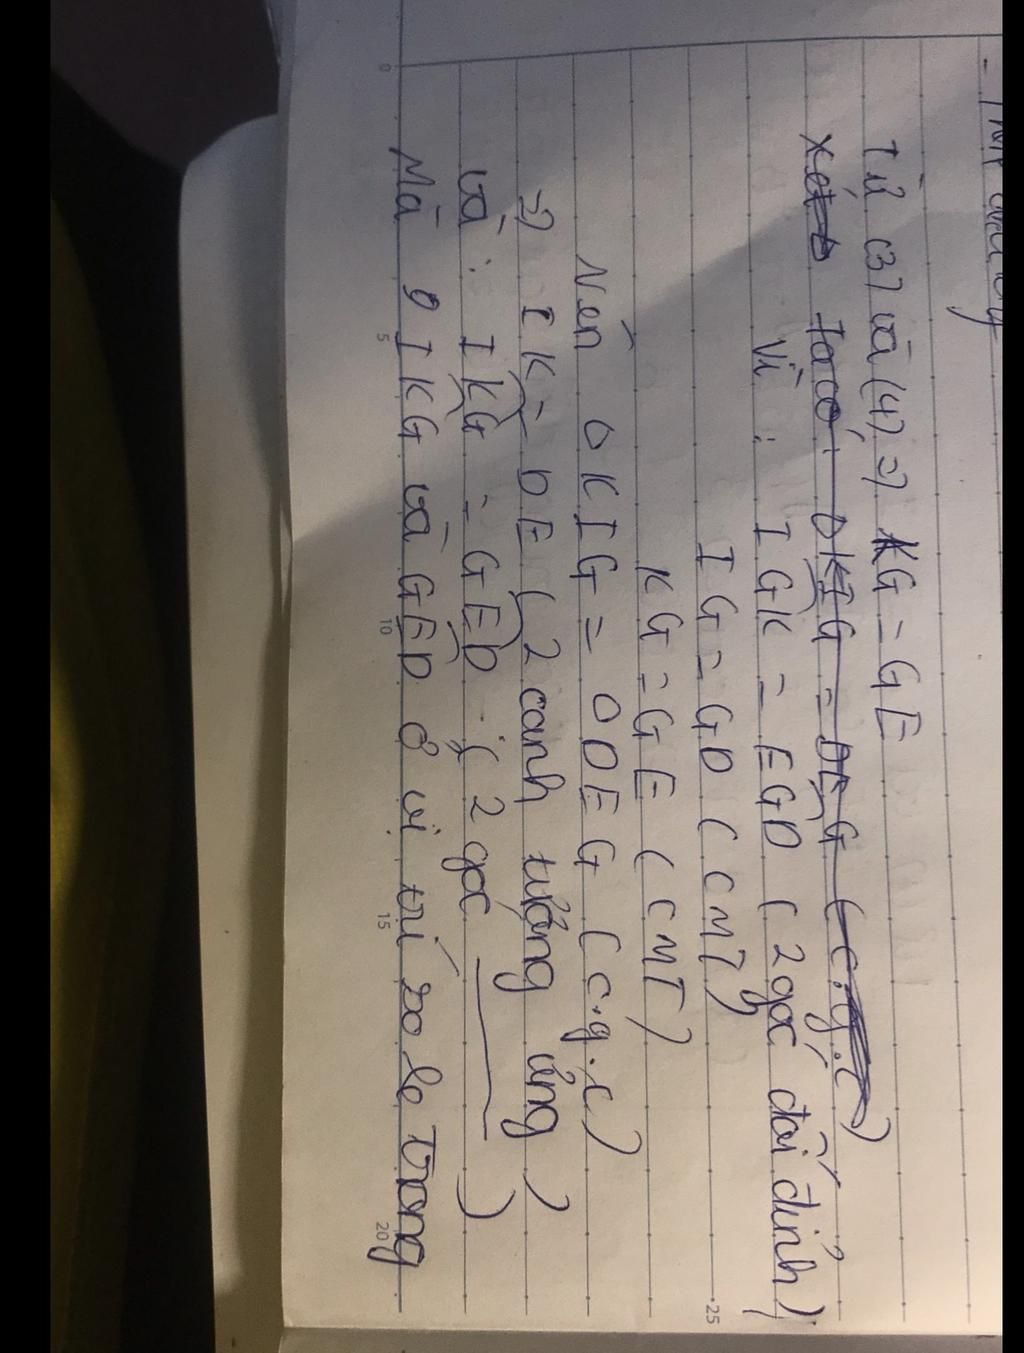 Từ (3) và (4) => KG = GE
Vì : IGK = EGD ( 2 góc đối đỉnh )
IG = GD ( CMT )
KG = GE ( CMT )
Nên ΔKIG = ΔDEG ( c.g.c )
=> IK = DE ( 2 cạnh tương ứng )
và : IKG = GED ( 2 góc ______ )
Mà 2 IKG và GED ở vị trí so le trong
0
5
10
15
20
25